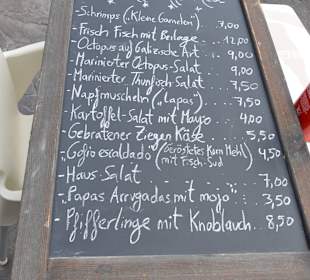 - Schrimps („Kleine Garnelen") . 7,00
- Frisch Fisch mit Beilage . . . 12,00
- Octopus auf Galizische Art . . 9,00
- Marinierter Octopus-Salat . . 9,00
- Marinierter Thunfisch Salat . . 7,50
- Napfmuscheln („Lapas") . . . 7,50
- Kartoffel-Salat mit Mayo . . 4,00
- Gebratener Ziegen Käse . . . 5,50
- „Gofio escaldado" (Geröstetes Korn Mehl mit Fisch-Sud) 4,50
- Haus-Salat . . . . . . . 7,00
- „Papas Arrugadas mit mojo" . . 3,50
- Pfifferlinge mit Knoblauch . . 8,50